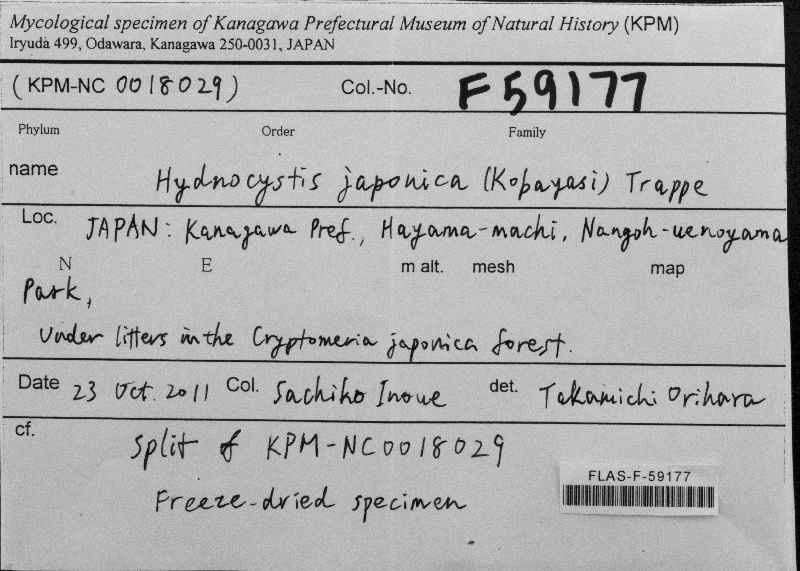 Mycological specimen of Kanagawa Prefectural Museum of Natural History (KPM)
Iryuda 499, Odawara, Kanagawa 250-0031, JAPAN
(KPM-NC 0018029) Col.-No. F59177
Phylum Order Family
name Hydnocystis japonica (Kobayasi) Trappe
Loc. JAPAN: Kanagawa Pref., Hayama-machi, Nangoh-uenoyama
N E m alt. mesh map
Park,
Under litters in the Cryptomeria japonica forest.
Date 23 Oct. 2011 Col. Sachiko Inoue det. Takamichi Orihara
cf.
Split of KPM-NC0018029
FLAS-F-59177
Freeze-dried specimen